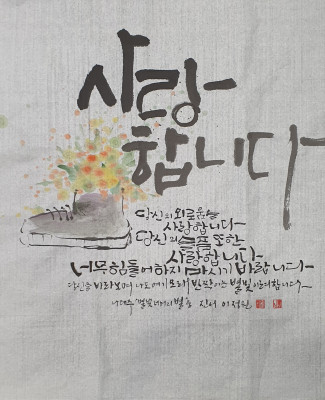 사랑
합니다
당신의 외로움을
사랑합니다
당신의 슬픔 또한
사랑합니다
너무 힘들어하지 마시기 바랍니다
당신을 바라보며 나도 여기 모래 반짝이는 별빛